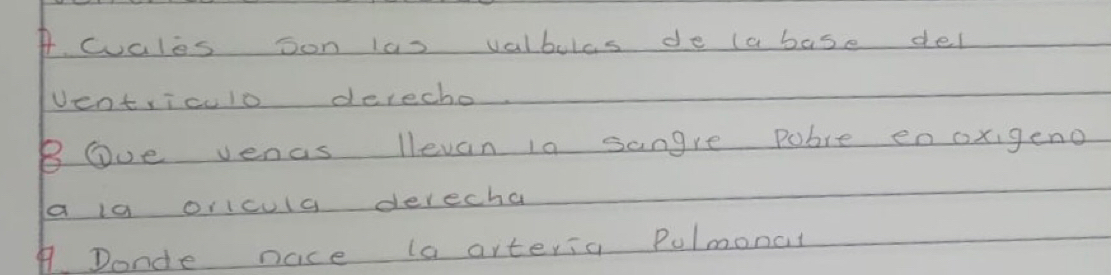 7. Cuales son las valbulas de la base del
ventriculo derecho.
8 Que venas llevan la sangre pobre en oxigeno
a la oricula derecha
9. Donde nace la arteria Pulmonar